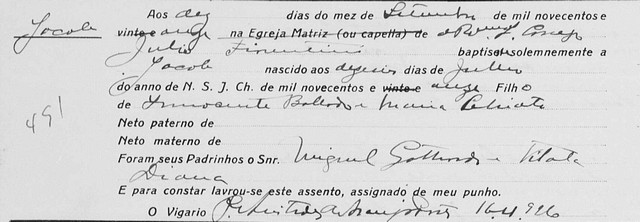 Jacob
Aos dez dias do mez de Setembro de mil novecentos e
vinte e onze na Egreja Matriz (ou capella) de o Rvmo J. Conego
Julio Fiorentini baptisou solemnemente a
Jacob nascido aos dias de Julho
do anno de N. S. J. Ch. de mil novecentos e vinte e onze Filho
de Innocente e Maria
491
Neto paterno de
Neto materno de
Foram seus Padrinhos o Snr. Miguel e
Diana
E para constar lavrou-se este assento, assignado de meu punho.
O Vigario P. 16.4.926